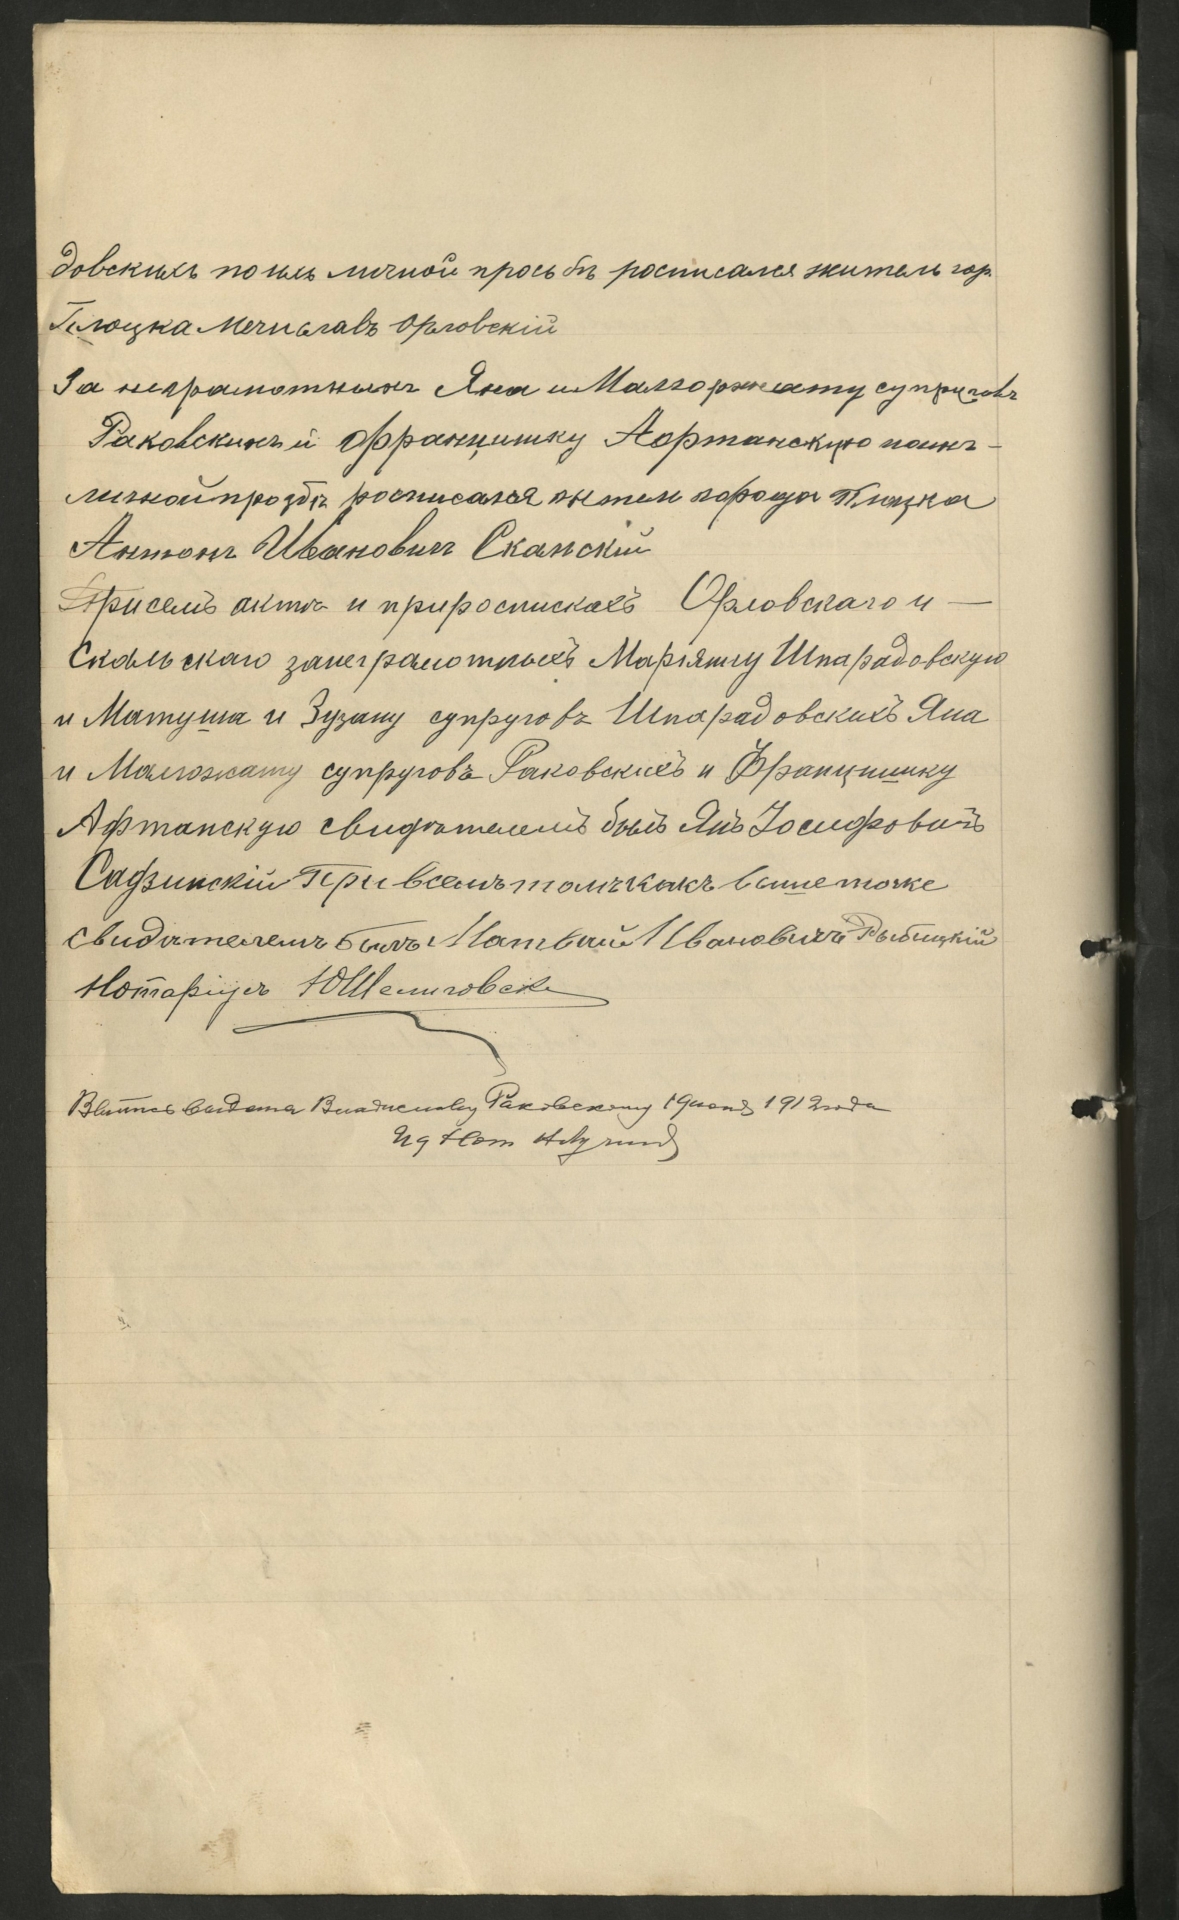 довскихъ по ихъ личной просьбѣ росписался житель гор.
Плоцка Мечиславъ Орловскій
За неграмотныхъ Яна и Малгоржату супруговъ
Раковскихъ и Францишку Афтанскую по ихъ-
личной прозбѣ росписался житель города Плоцка
Антонъ Ивановичъ Скальскій
При семъ актѣ и при росписках Орловскаго и —
Скальскаго за неграмотныхъ Маріянну Шпарадовскую
и Матуша и Зузану супруговъ Шпарадовскихъ Яна
и Малгожату супруговъ Раковскихъ и Францишку
Афтанскую свидѣтелемъ былъ Янъ Іосифовичъ
Садзинскій При всемъ томъ какъ выше тоже
свидѣтелемъ былъ Матвѣй Ивановичъ Рыбицкій
Нотаріусъ Ю Шелиговскі
Выпись выдана Владиславу Раковскому 19 іюня 1912 года